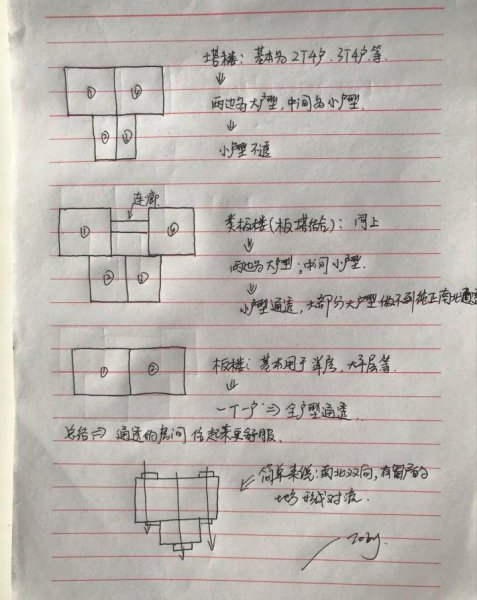 塔楼：基本为2T4户、3T4户等.
↓
两边为大户型，中间为小户型.
↓
小户型不通
① ④
② ③
连廊
类板楼(板塔结合)：同上
↓
两边为大户型；中间小户型.
↓
小户型通透，大部分大户型做不到纯正南北通透
① ④
② ③
板楼：基本用于洋房，大平层等.
↓
一T一户⇒全户型通透.
① ②
总结⇒通透的房间住起来更舒服.
简单来说：南北双向，有窗户的
地方形成对流.
Toby